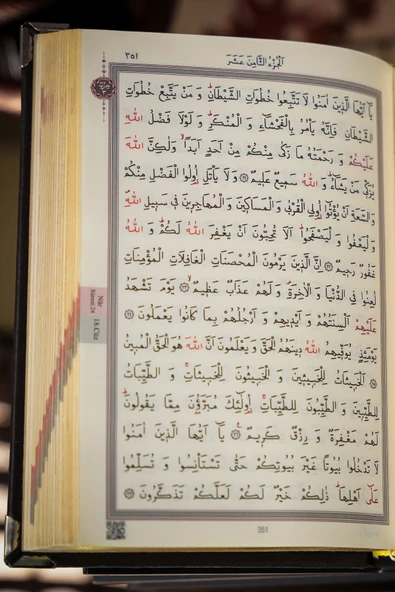 ٣٥١
اَلْجُزْءُ الثَّامِنَ عَشَرَ
يَٓا اَيُّهَا الَّذ۪ينَ اٰمَنُوا لَا تَتَّبِعُوا خُطُوَاتِ الشَّيْطَانِۜ وَ مَنْ يَتَّبِعْ خُطُوَاتِ
الشَّيْطَانِ فَاِنَّهُ يَاْمُرُ بِالْفَحْشَٓاءِ وَ الْمُنْكَرِۜ وَ لَوْلَا فَضْلُ اللّٰهِ
عَلَيْكُمْ وَ رَحْمَتُهُ مَا زَكٰى مِنْكُمْ مِنْ اَحَدٍ اَبَداًۙ وَلٰكِنَّ اللّٰهَ
يُزَكّ۪ي مَنْ يَشَٓاءُۜ وَ اللّٰهُ سَم۪يعٌ عَل۪يمٌ ﴿٢١﴾ وَ لَا يَاْتَلِ اُو۬لُوا الْفَضْلِ مِنْكُمْ
وَ السَّعَةِ اَنْ يُؤْتُٓوا اُو۬لِي الْقُرْبٰى وَ الْمَسَاك۪ينَ وَ الْمُهَاجِر۪ينَ ف۪ي سَب۪يلِ اللّٰهِۖ
وَ لْيَعْفُوا وَ لْيَصْفَحُواۜ اَلَا تُحِبُّونَ اَنْ يَغْفِرَ اللّٰهُ لَكُمْۜ وَ اللّٰهُ
غَفُورٌ رَح۪يمٌ ﴿٢٢﴾ اِنَّ الَّذ۪ينَ يَرْمُونَ الْمُحْصَنَاتِ الْغَافِلَاتِ الْمُؤْمِنَاتِ
لُعِنُوا فِي الدُّنْيَا وَ الْاٰخِرَةِۖ وَ لَهُمْ عَذَابٌ عَظ۪يمٌۙ ﴿٢٣﴾ يَوْمَ تَشْهَدُ
عَلَيْهِمْ اَلْسِنَتُهُمْ وَ اَيْد۪يهِمْ وَ اَرْجُلُهُمْ بِمَا كَانُوا يَعْمَلُونَ ﴿٢٤﴾
يَوْمَئِذٍ يُوَفّ۪يهِمُ اللّٰهُ د۪ينَهُمُ الْحَقَّ وَ يَعْلَمُونَ اَنَّ اللّٰهَ هُوَ الْحَقُّ الْمُب۪ينُ
﴿٢٥﴾ اَلْخَب۪يثَاتُ لِلْخَب۪يث۪ينَ وَ الْخَب۪يثُونَ لِلْخَب۪يثَاتِۚ وَ الطَّيِّبَاتُ
لِلطَّيِّب۪ينَ وَ الطَّيِّبُونَ لِلطَّيِّبَاتِۚ اُو۬لٰٓئِكَ مُبَرَّؤُ۫نَ مِمَّا يَقُولُونَۜ
لَهُمْ مَغْفِرَةٌ وَ رِزْقٌ كَر۪يمٌ۟ ﴿٢٦﴾ يَٓا اَيُّهَا الَّذ۪ينَ اٰمَنُوا
لَا تَدْخُلُوا بُيُوتاً غَيْرَ بُيُوتِكُمْ حَتّٰى تَسْتَاْنِسُوا وَ تُسَلِّمُوا
عَلٰٓى اَهْلِهَاۜ ذٰلِكُمْ خَيْرٌ لَكُمْ لَعَلَّكُمْ تَذَكَّرُونَ ﴿٢٧﴾
Nûr
Sûresi:24
18.Cüz
351